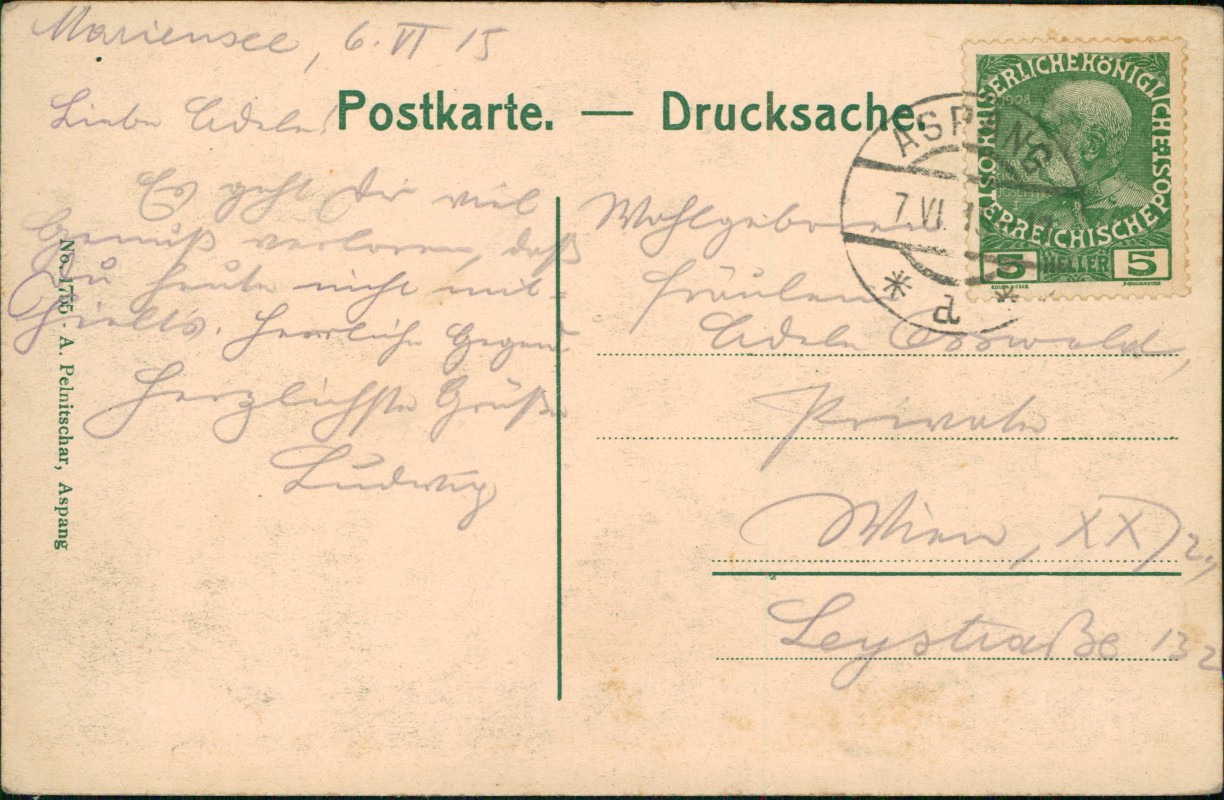 Mariensee, 6. VI 15
Postkarte. — Drucksache.
Liebe Adele!
Es geht Dir viel
Genuß verloren, daß
Du heute nicht mit-
hielts. Herrliche Gegend
Herzlichste Grüße
Ludwig
No. 1755 - A. Pelnitschar, Aspang
Wohlgeboren
Fräulein
Adele Osswald,
Private
Wien, XX/2,
Leystraße 132
KAISERLICHE KÖNIGLICHE ÖSTERREICHISCHE POST
1908
5 HELLER 5
ASPANG
7. VI. 15
* d *